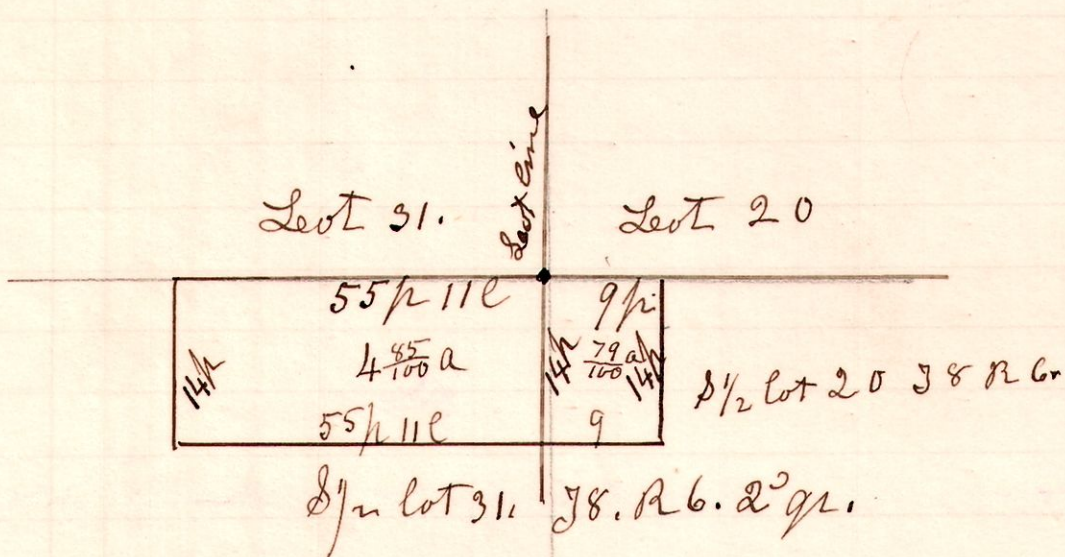 Lot line
Lot 31.
Lot 20
55p 11l
9p.
14p
4 85/100 a
14p
79/100 a
14p
S 1/2 lot 20 T8 R 6
55p 11l
9
S 1/2 lot 31. T8. R 6. 2d gr.